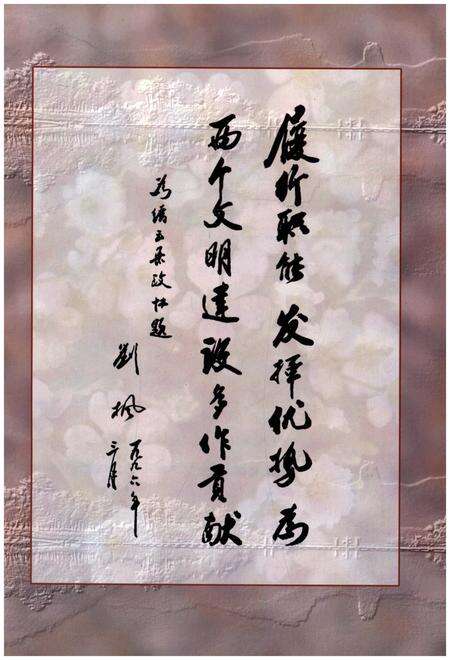 履行职能 发挥优势 为
两个文明建设多作贡献
为缙云县政协题
刘枫
一九九六年
三月